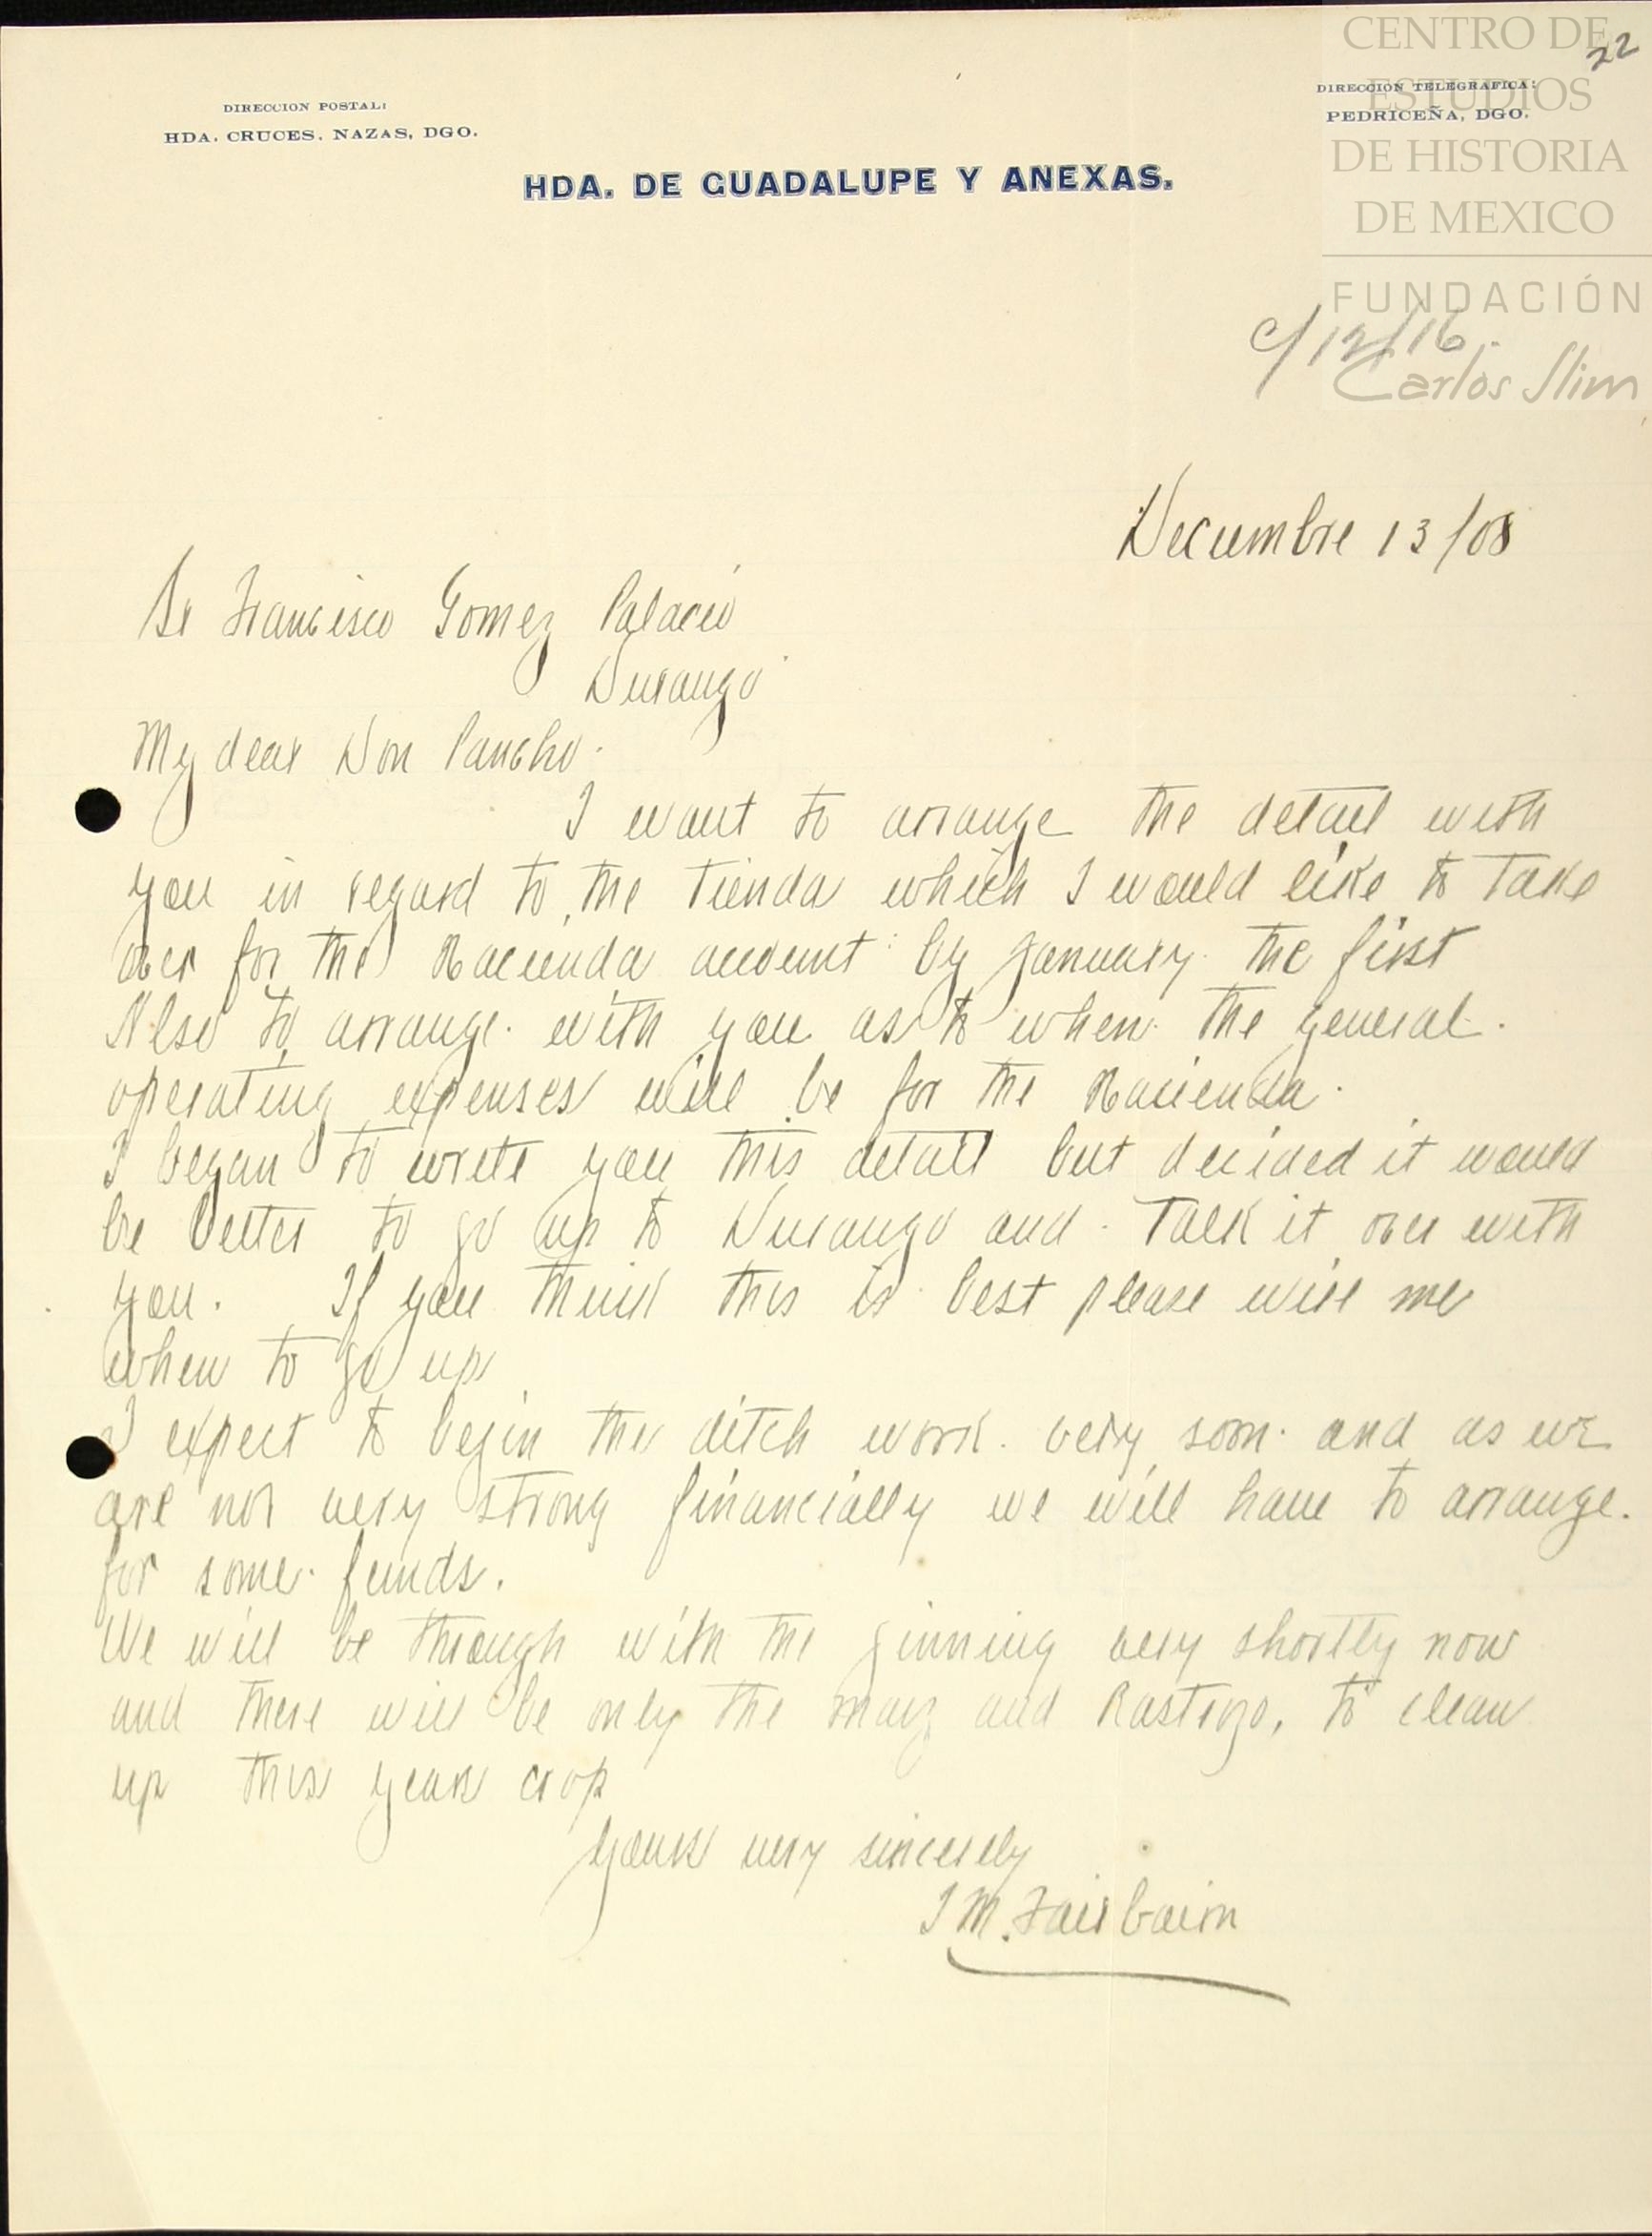 22
CENTRO DE
ESTUDIOS
DE HISTORIA
DE MEXICO
FUNDACIÓN
Carlos Slim
DIRECCION POSTAL:
HDA. CRUCES. NAZAS, DGO.
DIRECCION TELEGRAFICA:
PEDRICEÑA, DGO.
HDA. DE GUADALUPE Y ANEXAS.
c/12/16.
Decembre 13/08
Sr Francisco Gomez Palacio
Durango
My dear Don Pancho.
I want to arrange the detail with
you in regard to the Tienda which I would like to take
over for the Hacienda account by January the first
Also to arrange with you as to when the general
operating expenses will be for the Hacienda.
I began to write you this detail but decided it would
be better to go up to Durango and talk it over with
you. If you think this is best please wire me
when to go up
I expect to begin the ditch work very soon and as we
are not very strong financially we will have to arrange
for some funds.
We will be through with the ginning very shortly now
and there will be only the maiz and Rastrojo, to clean
up this years crop
Yours very sincerely
M. Fairbairn